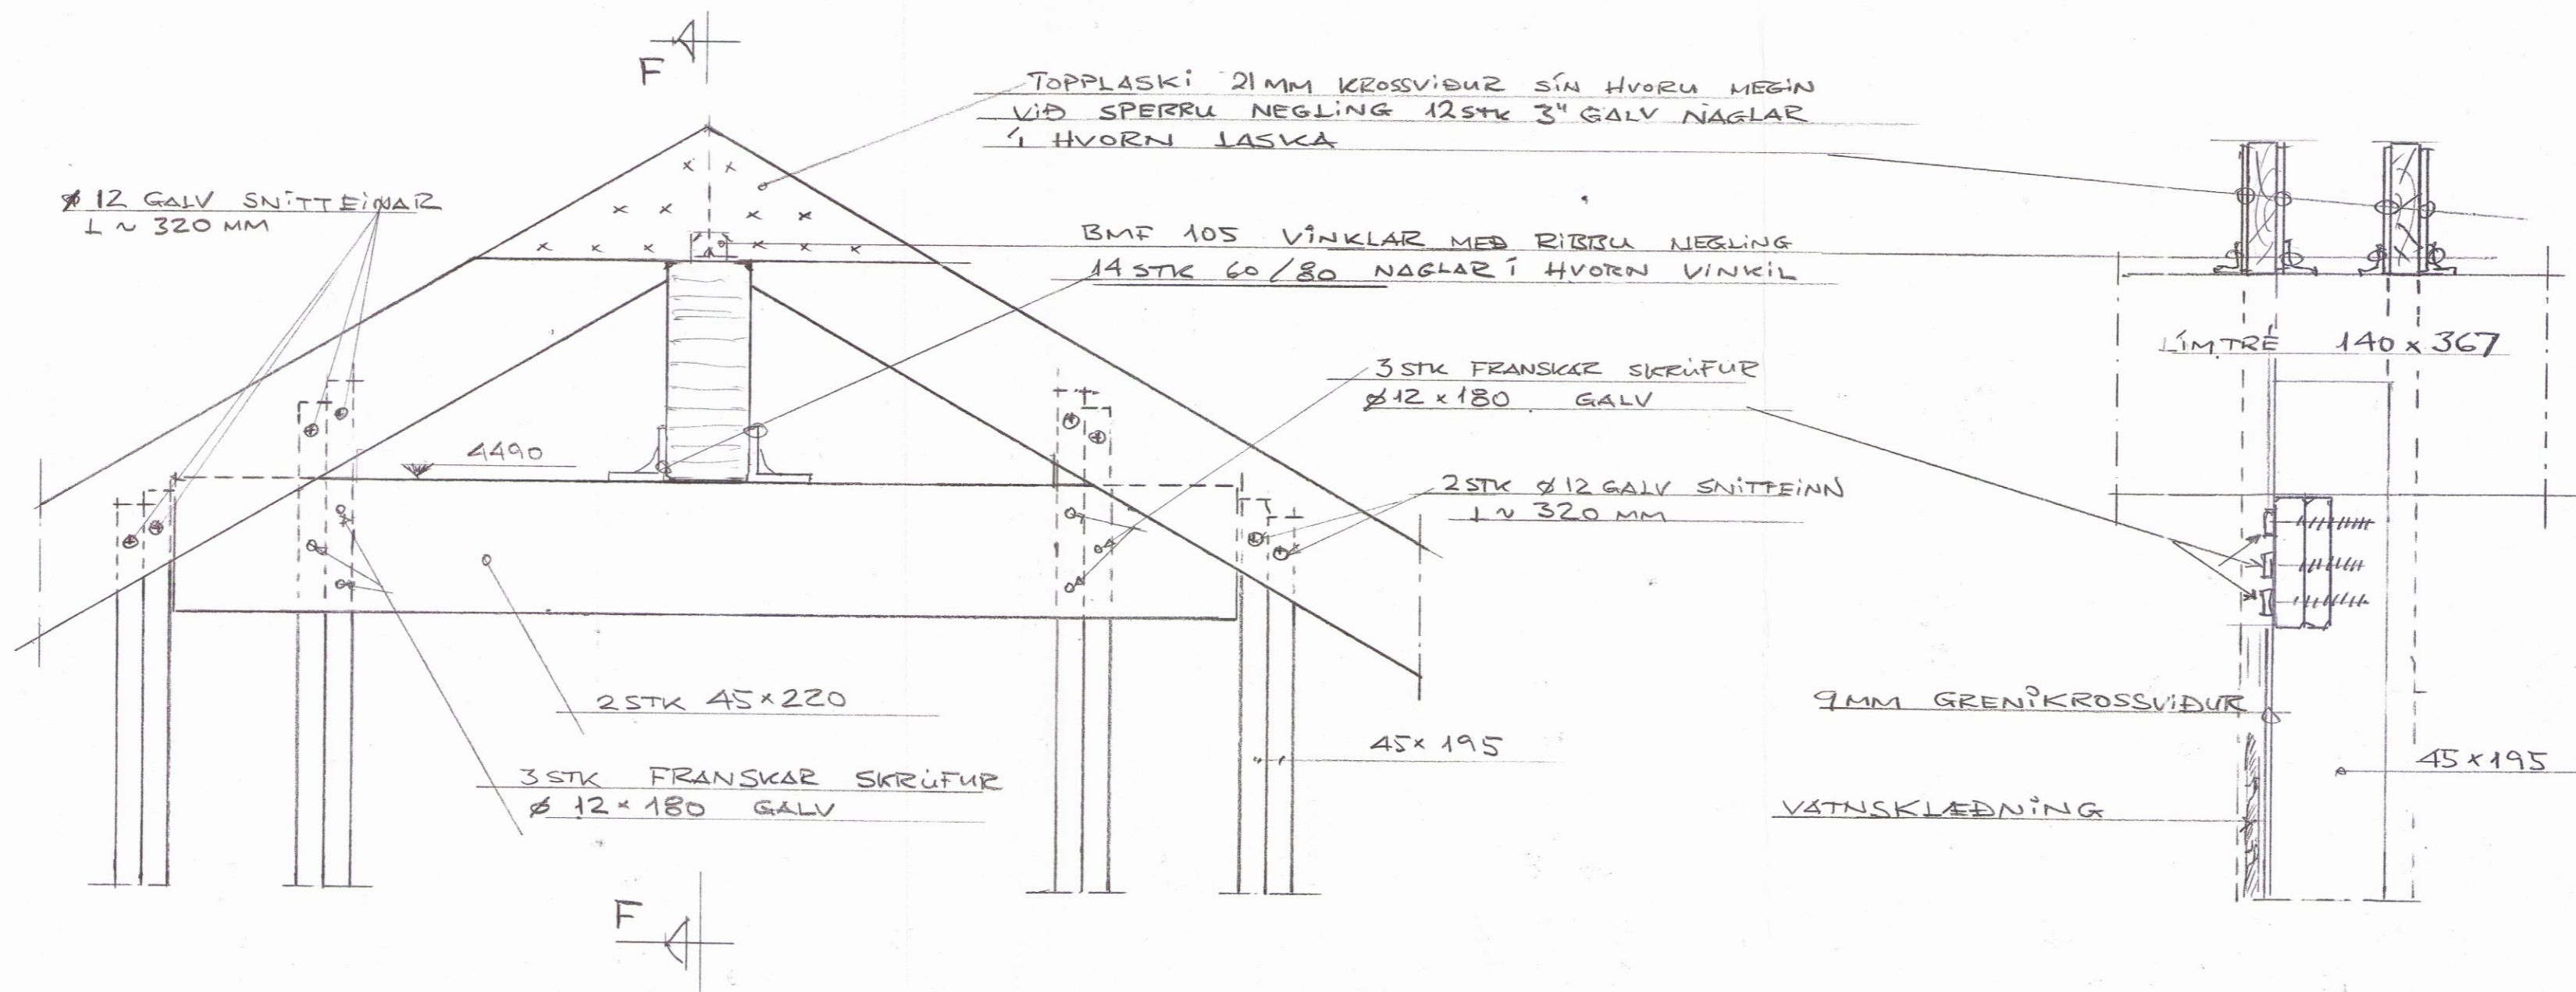 F
TOPPLASKI 21 MM KROSSVIÐUR SÍN HVORU MEGIN
VIÐ SPERRU NEGLING 12 STK 3" GALV NAGLAR
Í HVORN LASKA
Ø 12 GALV SNITTEINAR
L ~ 320 MM
BMF 105 VINKLAR MEÐ RIBBU NEGLING
14 STK 60/80 NAGLAR Í HVORN VINKIL
LÍMTRÉ 140 x 367
3 STK FRANSKAR SKRÚFUR
Ø12 x 180 GALV
4490
2 STK Ø12 GALV SNITTEINN
L ~ 320 MM
2 STK 45x220
9 MM GRENIKROSSVIÐUR
45x195
45x195
3 STK FRANSKAR SKRÚFUR
Ø 12 x 180 GALV
VATNSKLÆÐNING
F